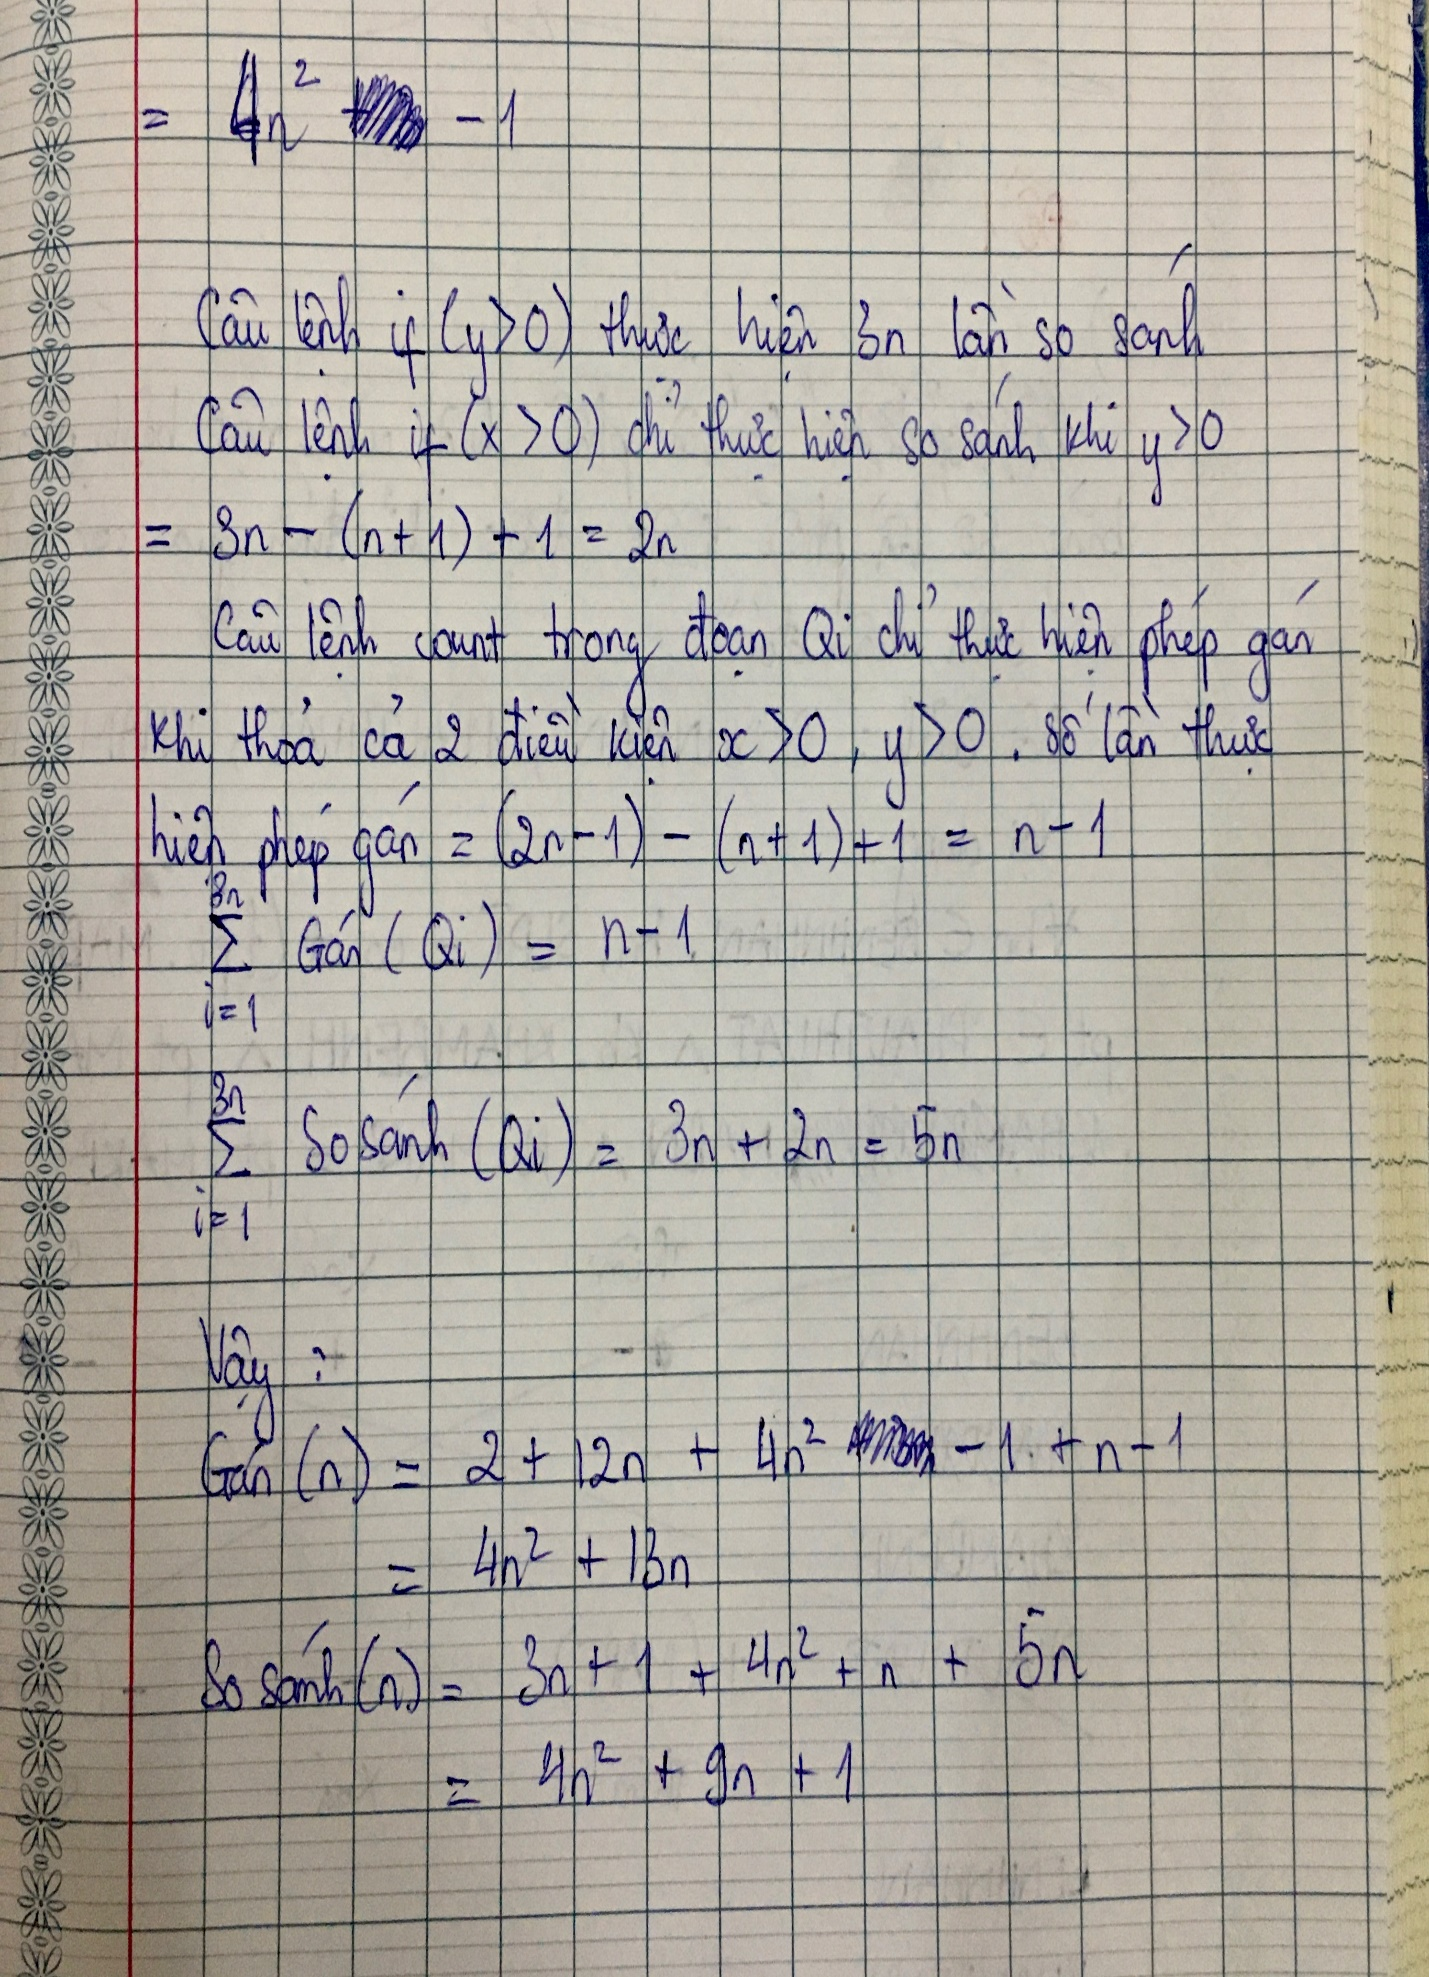 = 4n² - 1
Câu lệnh if (y>0) thực hiện 3n lần so sánh
Câu lệnh if (x>0) chỉ thực hiện so sánh khi y>0
= 3n - (n+1) + 1 = 2n
Câu lệnh count trong đoạn Qi chỉ thực hiện phép gán
khi thoả cả 2 điều kiện x>0, y>0. số lần thực
hiện phép gán = (2n-1) - (n+1)+1 = n-1
3n
∑ Gán (Qi) = n-1
i=1
3n
∑ So sánh (Qi) = 3n + 2n = 5n
i=1
Vậy :
Gán (n) = 2 + 12n + 4n² - 1 + n-1
= 4n² + 13n
So sánh (n) = 3n + 1 + 4n² + n + 5n
= 4n² + 9n + 1